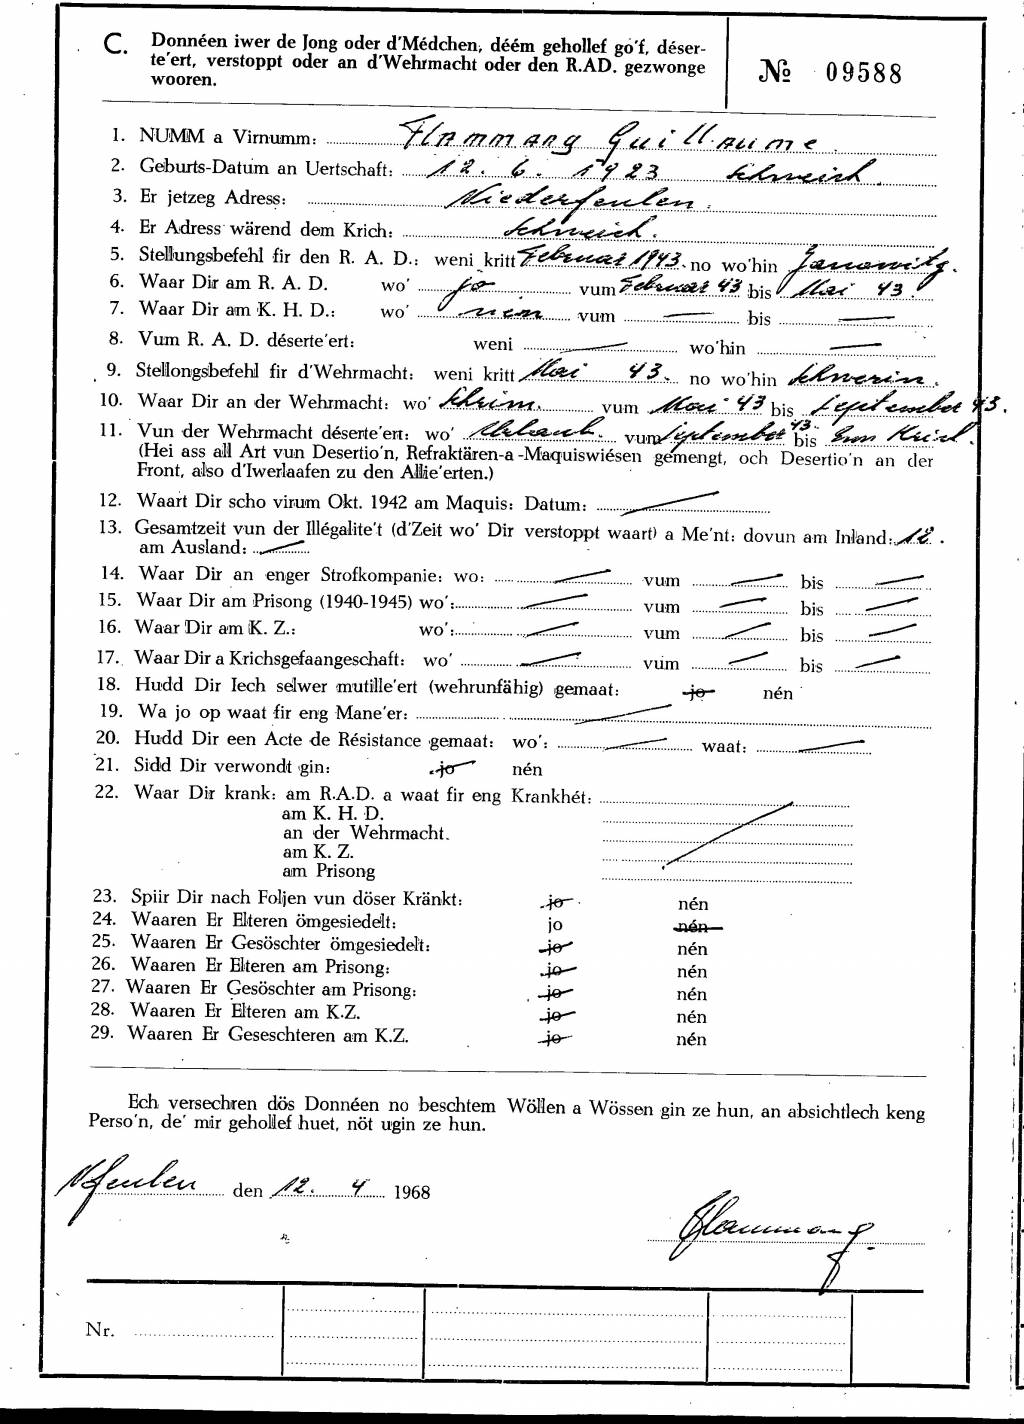 C. Donnéen iwer de Jong oder d'Médchen, déém gehollef go'f, déser-
te'ert, verstoppt oder an d'Wehrmacht oder den R.AD. gezwonge
wooren.
№ 09588
1. NUMM a Virnumm: Flammang Guillaume.
2. Geburts-Datum an Uertschaft: 12. 6. 1923 Schweich.
3. Er jetzeg Adress: Niederfeulen.
4. Er Adress wärend dem Krich: Schweich.
5. Stellungsbefehl fir den R. A. D.: weni kritt Februar 1943. no wo'hin Janowitz.
6. Waar Dir am R. A. D. wo' jo vum Februar 43 bis Mai 43.
7. Waar Dir am K. H. D.: wo' nien vum — bis —
8. Vum R. A. D. déserte'ert: weni — wo'hin —
9. Stellongsbefehl fir d'Wehrmacht: weni kritt Mai 43. no wo'hin Schwerin.
10. Waar Dir an der Wehrmacht: wo' Schrim. vum Mai 43 bis September 43.
11. Vun der Wehrmacht déserte'ert: wo' Urlaub. vum September 43. bis Enn Krich.
(Hei ass all Art vun Desertio'n, Refraktären-a-Maquiswiésen gemengt, och Desertio'n an der
Front, also d'Iwerlaafen zu den Allie'erten.)
12. Waart Dir scho virum Okt. 1942 am Maquis: Datum: —
13. Gesamtzeit vun der Illégalite't (d'Zeit wo' Dir verstoppt waart) a Me'nt: dovun am Inland: 12.
am Ausland: —
14. Waar Dir an enger Strofkompanie: wo: — vum — bis —
15. Waar Dir am Prisong (1940-1945) wo': — vum — bis —
16. Waar Dir am K. Z.: wo': — vum — bis —
17. Waar Dir a Krichsgefaangeschaft: wo' — vum — bis —
18. Hudd Dir Iech selwer mutille'ert (wehrunfähig) gemaat: jo nén
19. Wa jo op waat fir eng Mane'er: —
20. Hudd Dir een Acte de Résistance gemaat: wo': — waat: —
21. Sidd Dir verwondt gin: jo nén
22. Waar Dir krank: am R.A.D. a waat fir eng Krankhét:
am K. H. D.
an der Wehrmacht.
am K. Z.
am Prisong
23. Spiir Dir nach Foljen vun döser Kränkt: jo nén
24. Waaren Er Elteren ömgesiedelt: jo nén
25. Waaren Er Gesöschter ömgesiedelt: jo nén
26. Waaren Er Elteren am Prisong: jo nén
27. Waaren Er Gesöschter am Prisong: jo nén
28. Waaren Er Elteren am K.Z. jo nén
29. Waaren Er Geseschteren am K.Z. jo nén
Ech versechren dös Donnéen no beschtem Wöllen a Wössen gin ze hun, an absichtlech keng
Perso'n, de' mir gehollef huet, nöt ugin ze hun.
Nfeulen den 12. 4 1968
Flammang.
Nr.